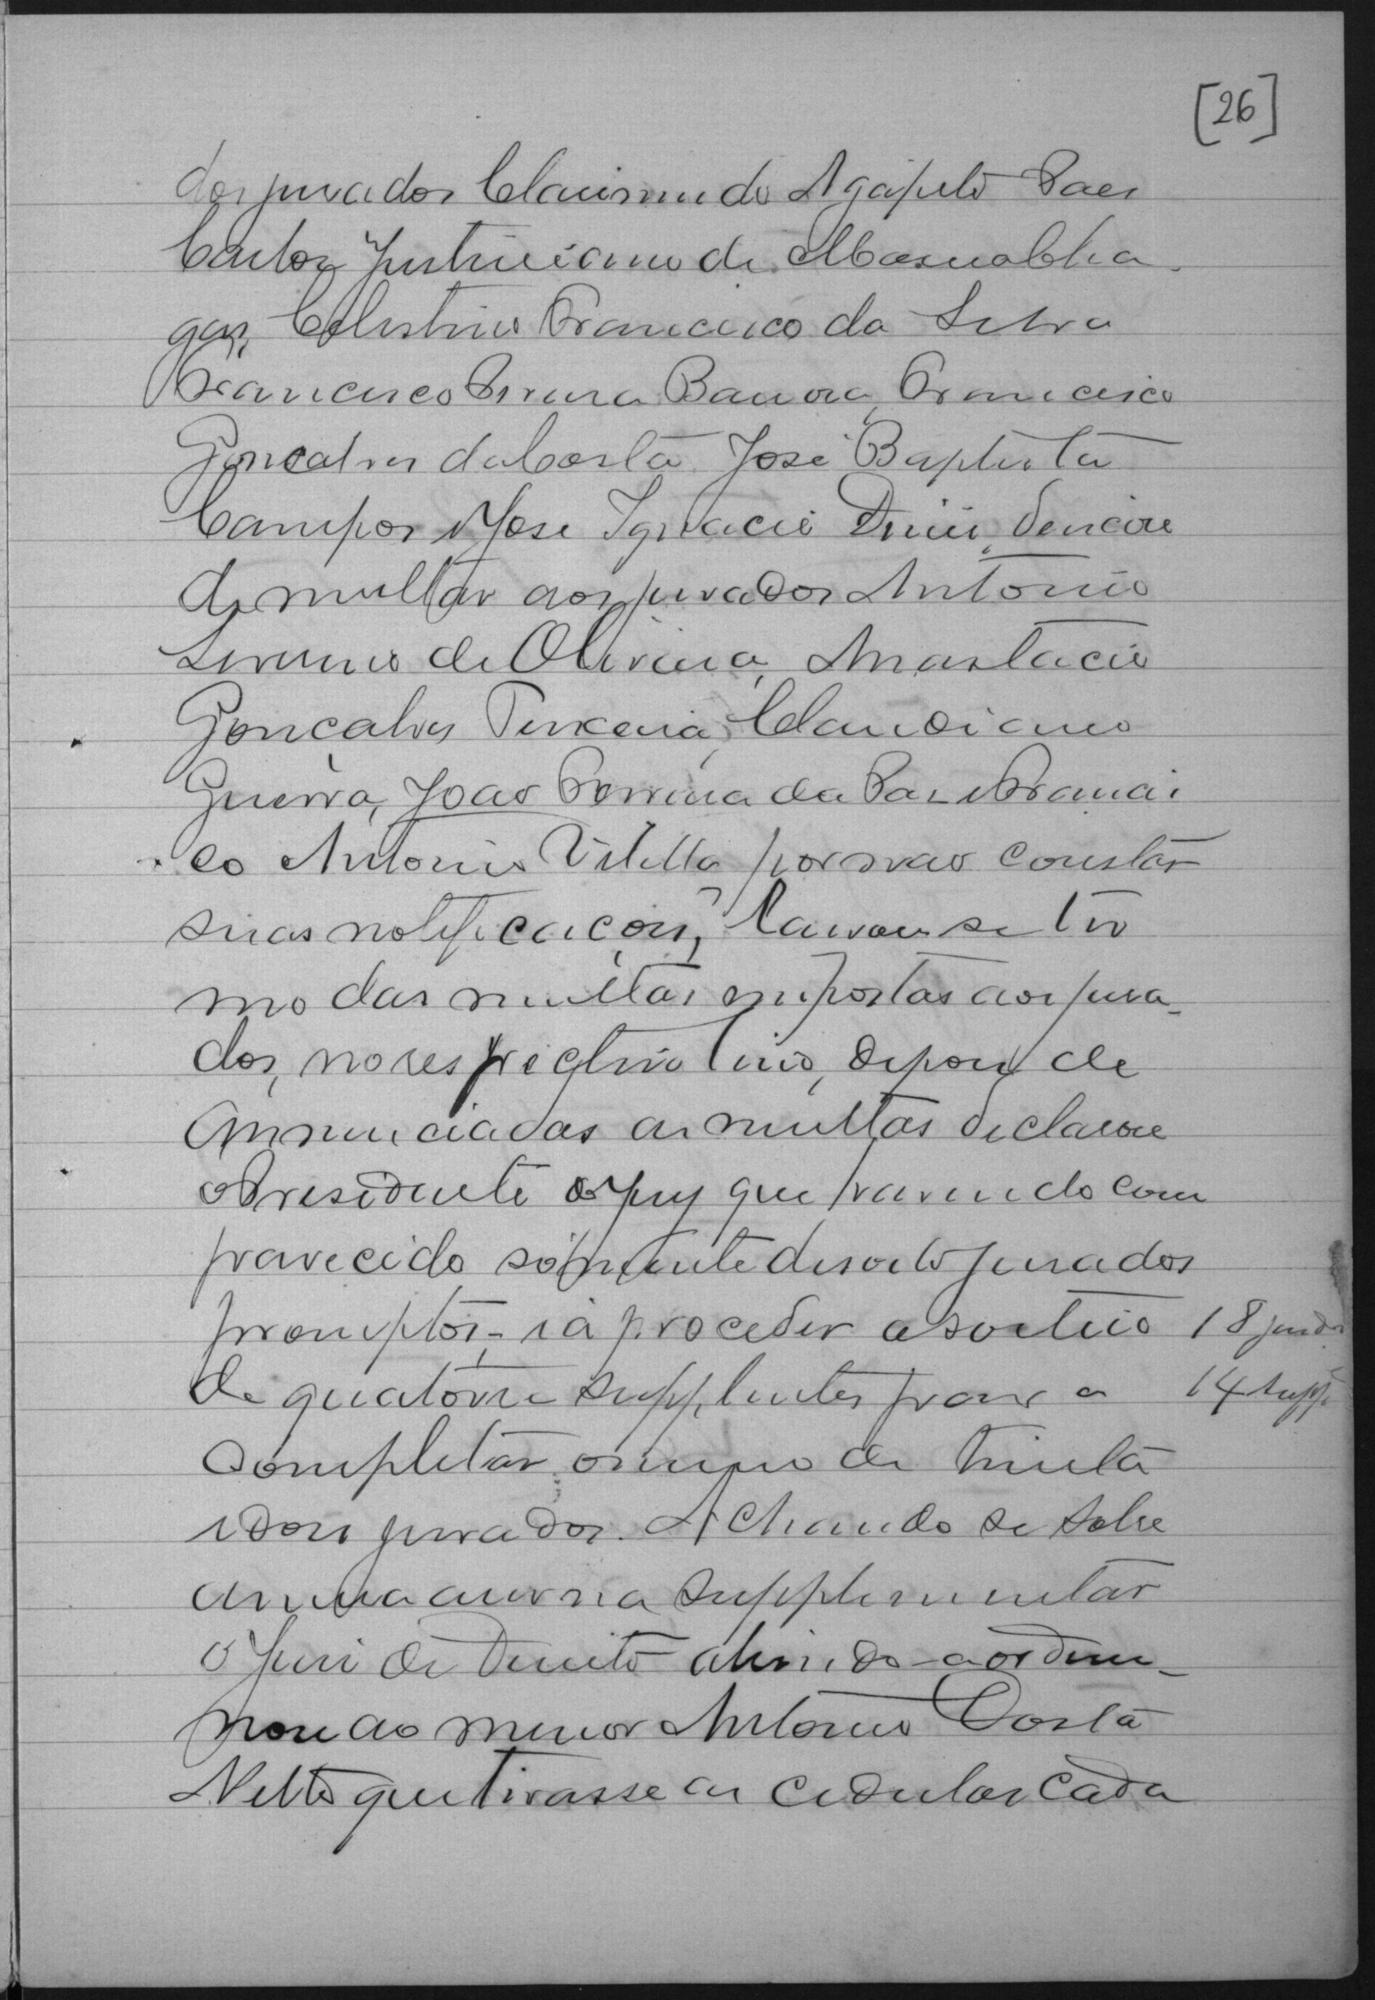 [26]
dos jurados Clarismundo Agápeto Paes
Carlos Justiniano de Chaga
gas, Celestino Francisco da Silva
Francisco Pereira Barros, Francisco
Gonçalves da Costa José Baptista
Campos e José Ignacio Diniz, deixou
de multar aos jurados Antonio
Severino de Oliveira, Anastacio
Gonçalves Teixeira, Claudiano
Guerra, Joao Ferreira da Paz e Francis
co Antonio Vilella por nao constar
suas notificações, Lavrou se ter
mo das multas impostas aos jura-
dos, no respectivo livro, depois de
annunciadas as multas declarou
o Presidente do jury que havendo com
parecido sómente desoito jurados
promptos, ia proceder a sorteio
18 jurados
de quatorze supplentes para
14 supp
completar o numero de trinta
e dois jurados. Achando se sobre
a mesa a urna supplementar
o Juiz de Direito abrindo-a orde-
nou ao menor Antonio Costa
Netto que tirasse as cedulas cada